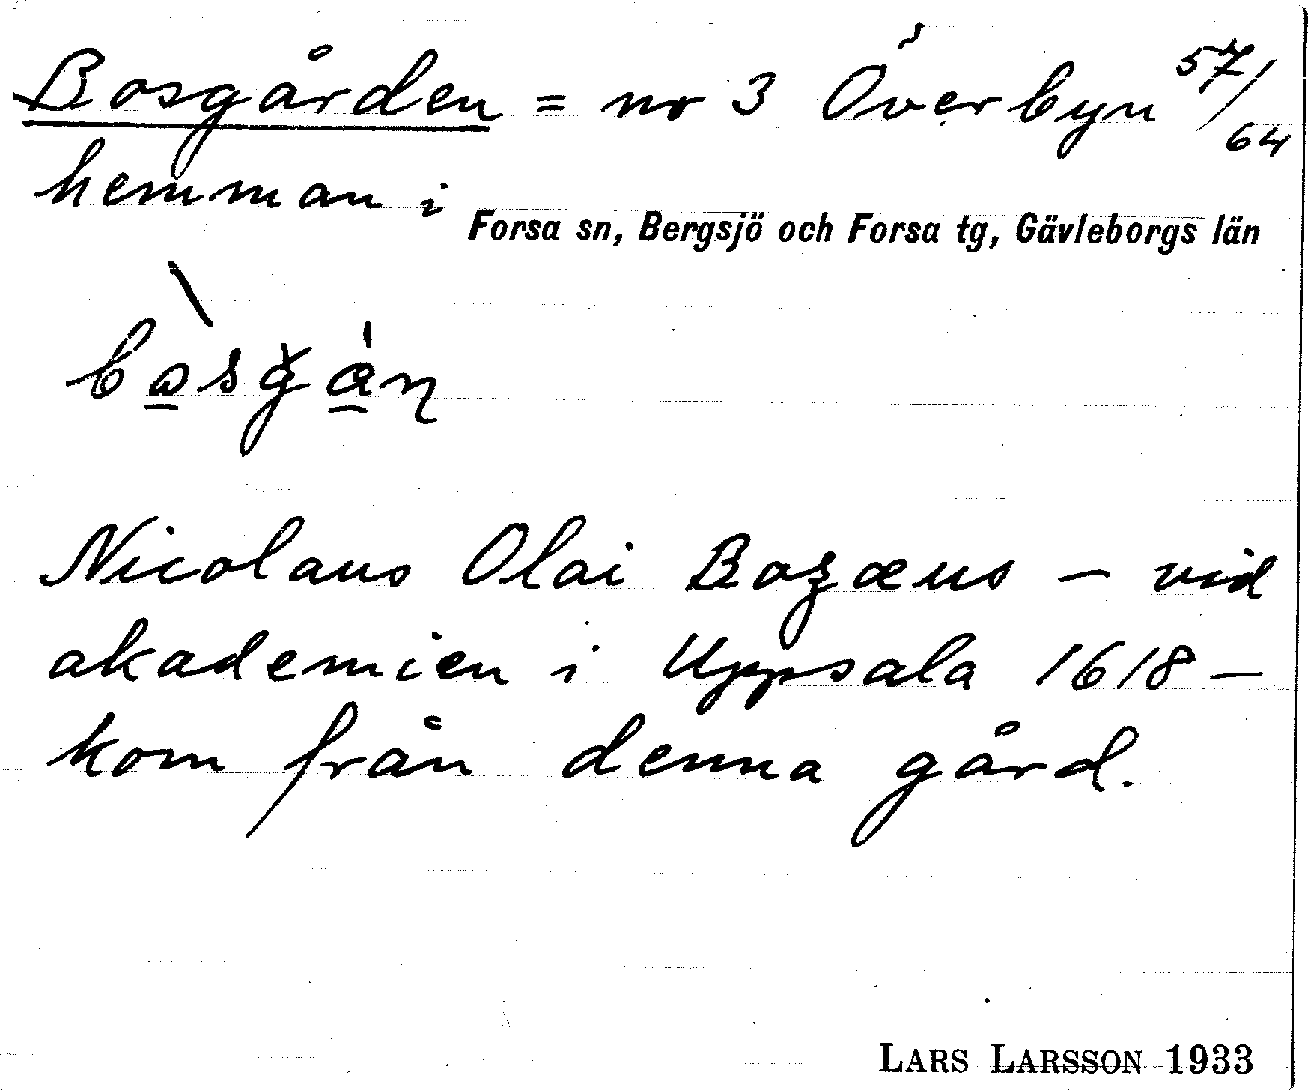 Bosgården = nr 3 Överbyn 57/64
hemman i Forsa sn, Bergsjö och Forsa tg, Gävleborgs län
Nicolaus Olai Bozæus – vid
akademien i Uppsala 1618 –
kom från denna gård.
LARS LARSSON 1933